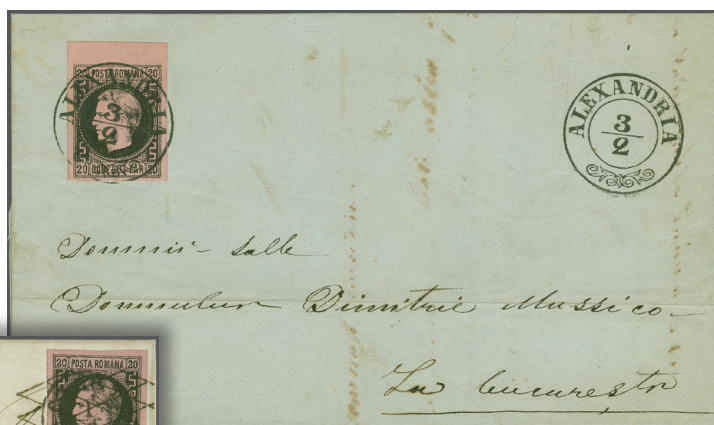 20 POSTA ROMANA 20
ALEXANDRIA
3
2
20 20
ALEXANDRIA
3
2
Domniei Salle
Domnului Dimitrie Mussico
La Bucuresti
20 POSTA ROMANA 20